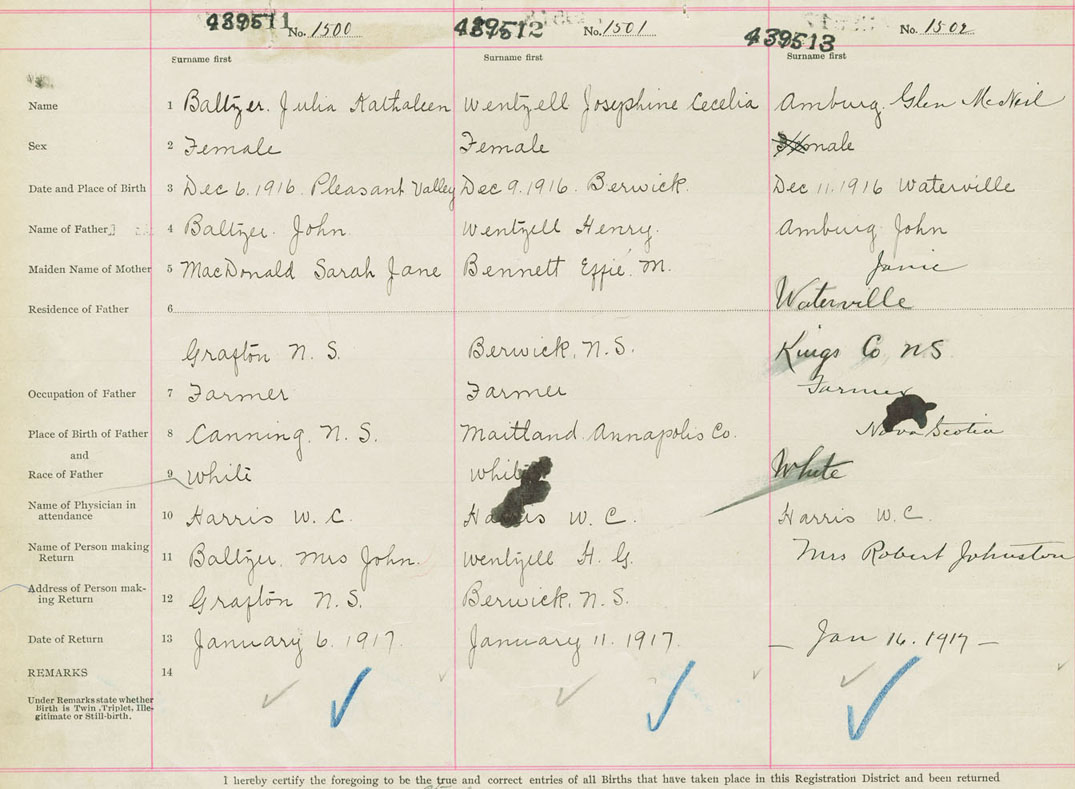 439511 No. 1500 439512 No. 1501 439513 No. 1502
Surname first Surname first Surname first
Name 1 Baltzer. Julia Kathaleen Wentzell Josephine Cecelia Amburg. Glen McNeil
Sex 2 Female Female male
Date and Place of Birth 3 Dec 6. 1916. Pleasant Valley Dec 9. 1916. Berwick. Dec 11. 1916 Waterville
Name of Father 4 Baltzer. John. Wentzell Henry. Amburg John
Maiden Name of Mother 5 MacDonald Sarah Jane Bennett Effie M. Janie
Residence of Father 6 Waterville
Grafton N. S. Berwick, N. S. Kings Co NS
Occupation of Father 7 Farmer Farmer Farmer
Place of Birth of Father 8 Canning. N. S. Maitland. Annapolis Co. Nova Scotia
and
Race of Father 9 White White White
Name of Physician in
attendance 10 Harris W. C. Harris W. C. Harris W. C.
Name of Person making
Return 11 Baltzer. Mrs John. Wentzell H. G. Mrs Robert Johnston
Address of Person mak-
ing Return 12 Grafton N. S. Berwick, N. S.
Date of Return 13 January 6. 1917. January 11. 1917. – Jan 16. 1917 –
REMARKS 14
Under Remarks state whether
Birth is Twin, Triplet, Ille-
gitimate or Still-birth.
I hereby certify the foregoing to be the true and correct entries of all Births that have taken place in this Registration District and been returned